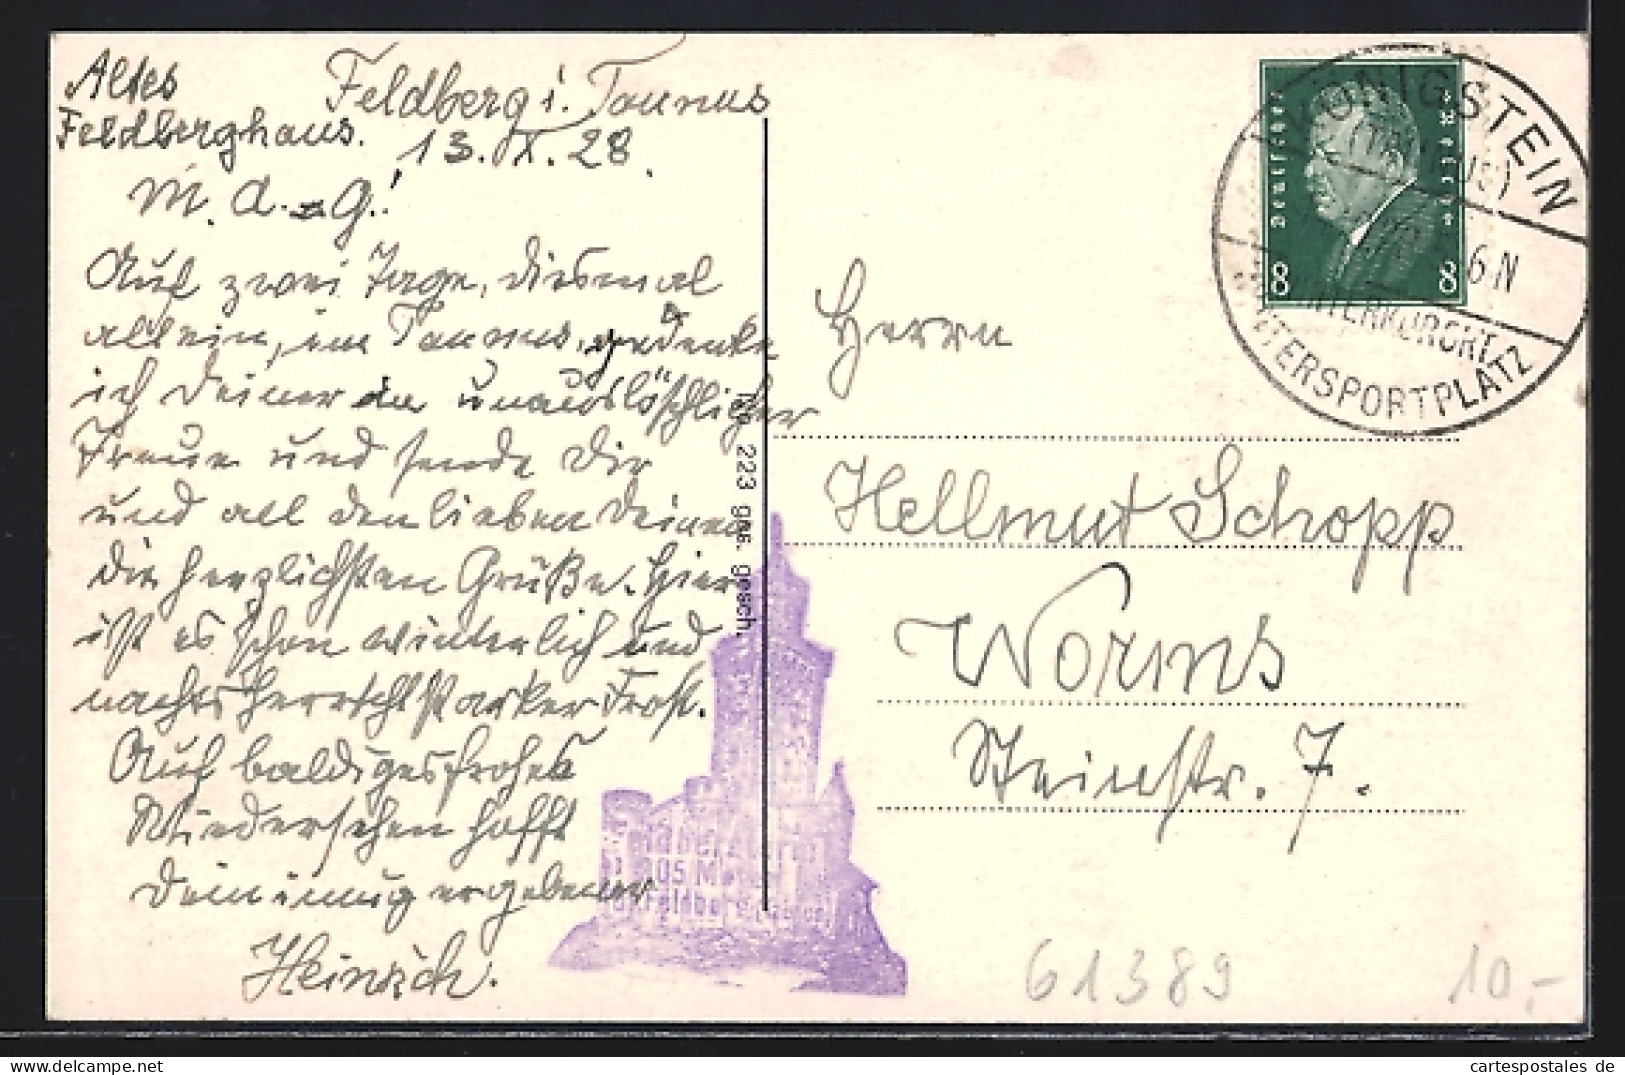 Altes
Feldberghaus.
Feldberg i. Taunus
13. X. 28.
M. a. G.!
Auf zwei Tage, diesmal
allein, im Taunus, gedenke
ich Deiner in unauslöschlicher
Treue und sende Dir
und all den lieben Deinen
die herzlichsten Grüße. Hier
ist es schon winterlich und
nachts herrscht starker Frost.
Auf baldiges frohes
Wiedersehen hofft
Dein innig ergebener
Heinrich.
223 ges. gesch.
Deutsches Reich
8 8
KÖNIGSTEIN
(TAUNUS)
6-N
WINTERKURORT
WINTERSPORTPLATZ
Herrn
Hellmut Schopp
Worms
Steinstr. 7.
Feldberg Taunus
61389
10.-
www.cartespostales.de